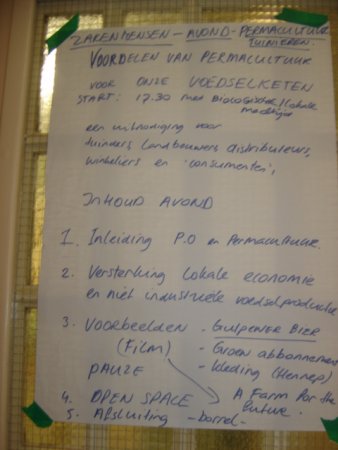 ZAKENMENSEN - AVOND - PERMACULTUUR
TUINIEREN.
VOORDELEN VAN PERMACULTUUR
VOOR ONZE VOEDSELKETEN
START: 17.30 met Biologische/lokale
maaltijd
een uitnodiging voor
tuinders, landbouwers, distributeurs,
winkeliers en 'consumenten',
INHOUD AVOND
1. Inleiding P.O en Permacultuur.
2. Versterking lokale economie
en niet industriële voedselproductie
3. VOORBEELDEN - GULPENER BIER
(FILM) - Groen abonnement
PAUZE - kleding (Hennep)
4. OPEN SPACE A Farm For the
Future.
5. Afsluiting - borrel -